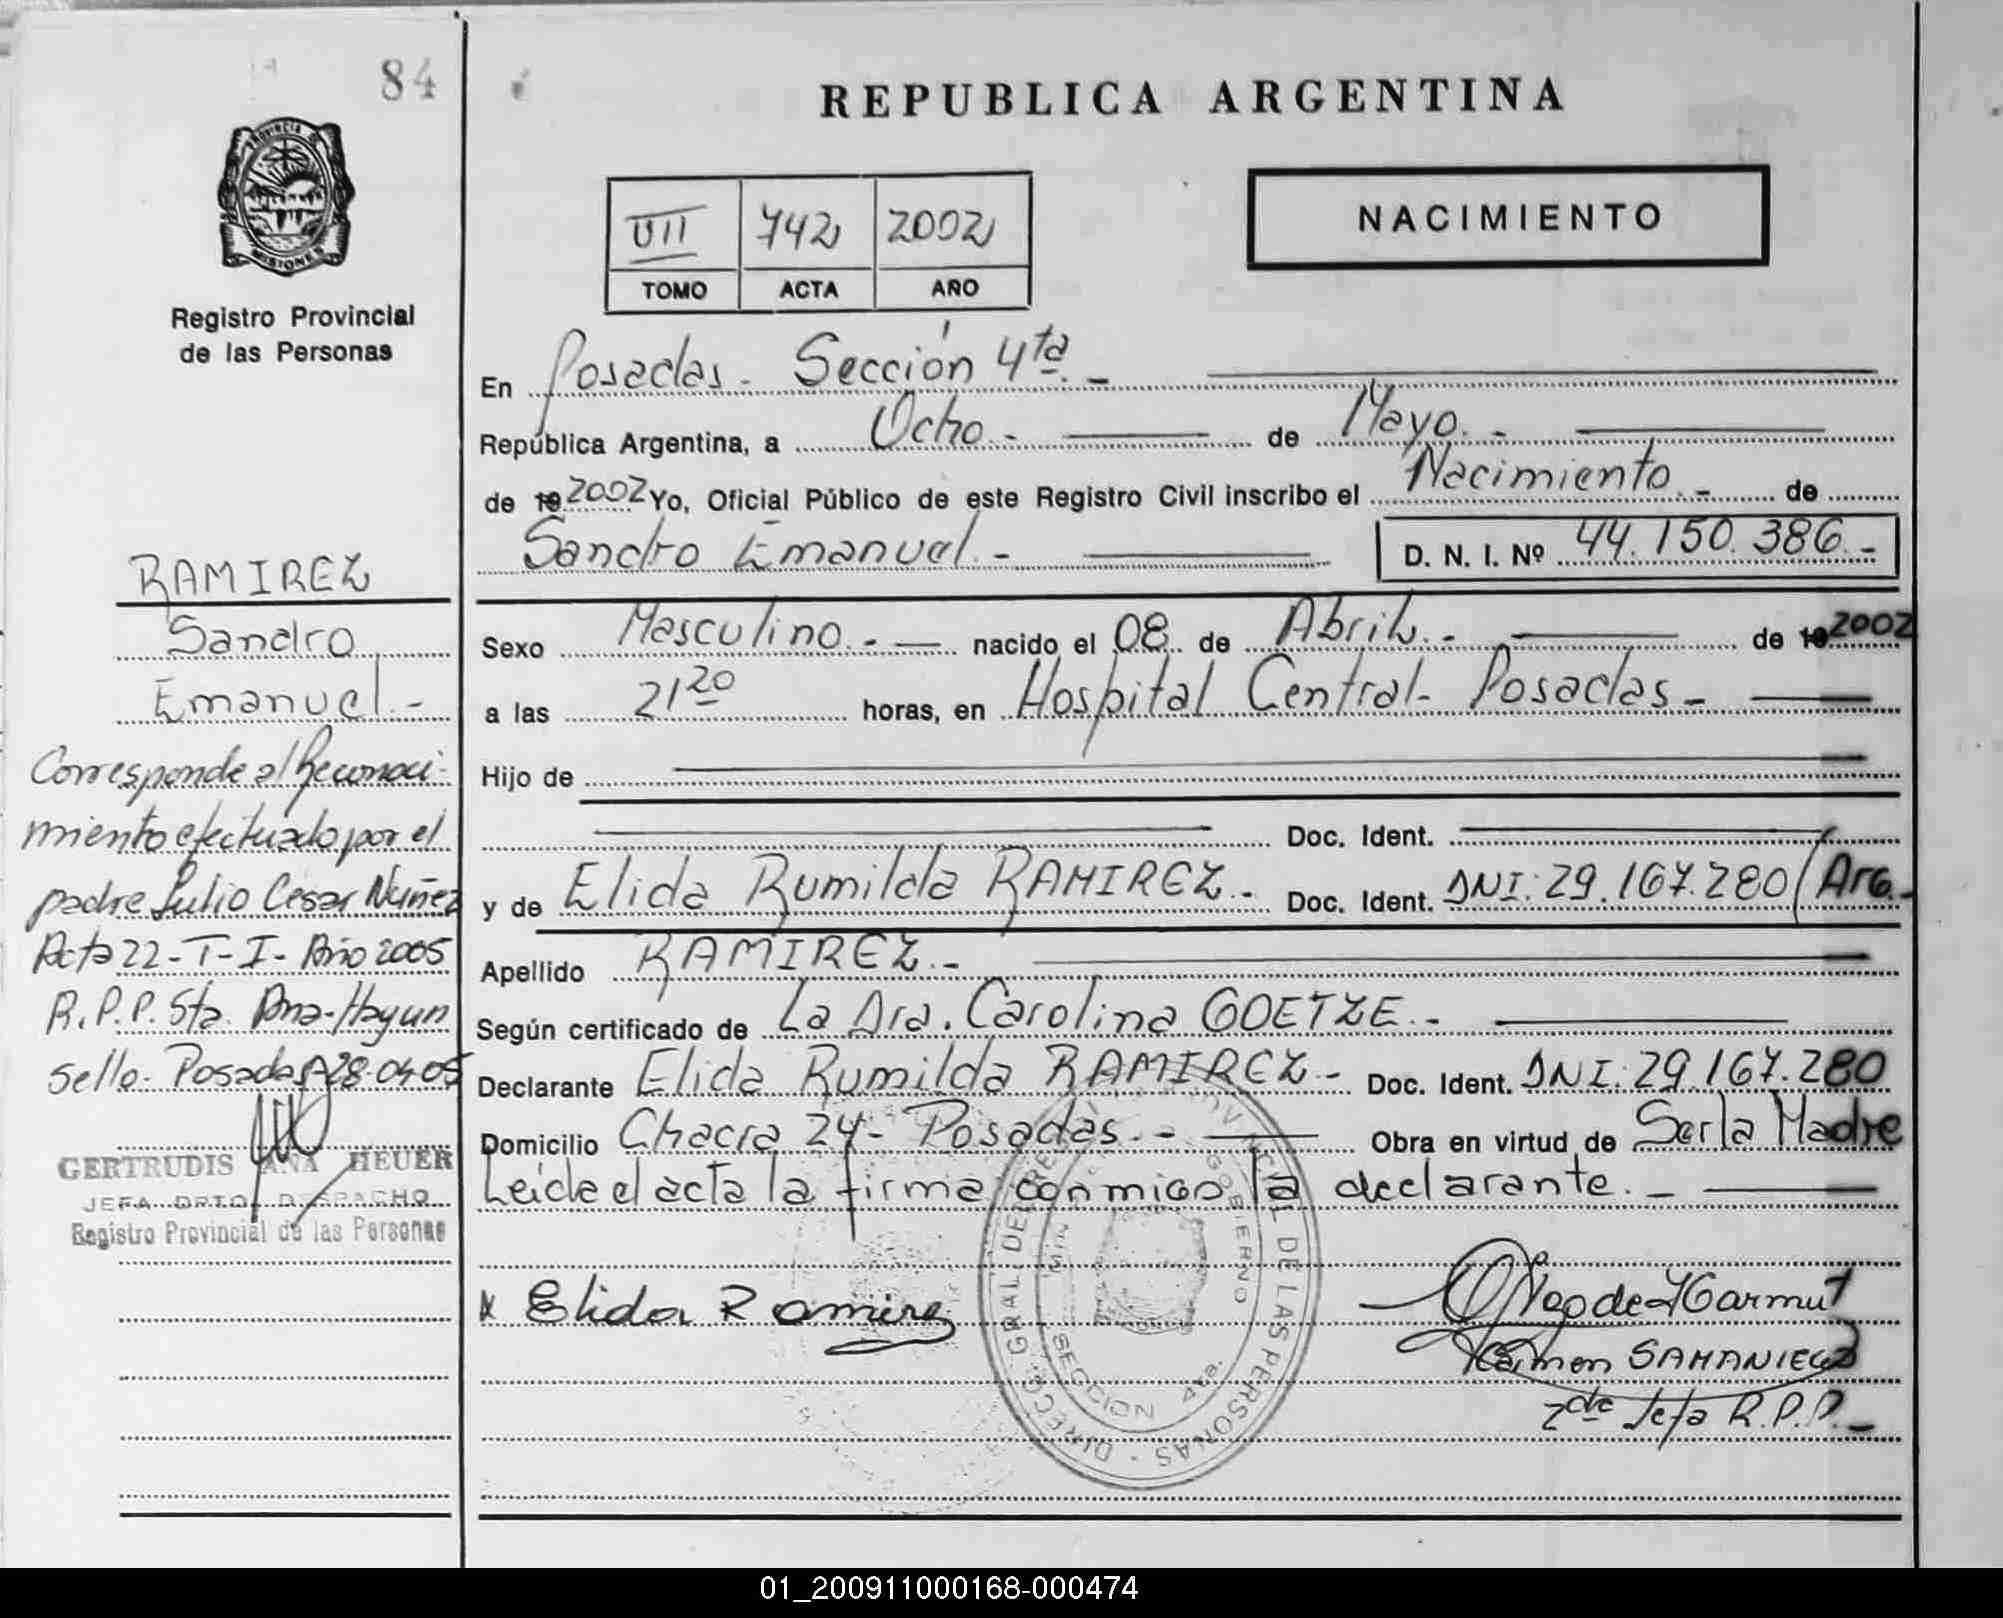 84
REPUBLICA ARGENTINA
PROVINCIA DE MISIONES
Registro Provincial
de las Personas
VII 742 2002
TOMO ACTA AÑO
NACIMIENTO
En Posadas - Sección 4ta. -
República Argentina, a Ocho - de Mayo. -
de 19 2002 Yo, Oficial Público de este Registro Civil inscribo el Nacimiento. - de
Sandro Emanuel. - D. N. I. Nº 44.150.386.-
Sexo Masculino. - nacido el 08 de Abril. - de 19 2002
a las 21 20 horas, en Hospital Central - Posadas -
Hijo de
Doc. Ident.
y de Elida Rumilda RAMIREZ. - Doc. Ident. DNI: 29.167.280/Arg.-
Apellido RAMIREZ. -
Según certificado de La Dra. Carolina GOETZE. -
Declarante Elida Rumilda RAMIREZ - Doc. Ident. DNI: 29.167.280
Domicilio Chacra 24 - Posadas. - Obra en virtud de Ser la Madre
Leida el acta la firma conmigo la declarante. -
x Elida Ramirez
Carmen SAMANIEGO
2da Jefa R.P.P. -
DIRECC. GRAL. DEL REG. PROVINCIAL DE LAS PERSONAS
MIN. GOBIERNO
SECCION 4ta.
RAMIREZ
Sandro
Emanuel. -
Corresponde al Reconoci-
miento efectuado por el
padre Julio Cesar Nuñez
Acta 22 - T - I - Año 2005
R.P.P. Sta. Ana - Hay un
sello - Posadas 28-04-05
GERTRUDIS ANA HEUER
JEFA DPTO. DESPACHO
Registro Provincial de las Personas
01_200911000168-000474